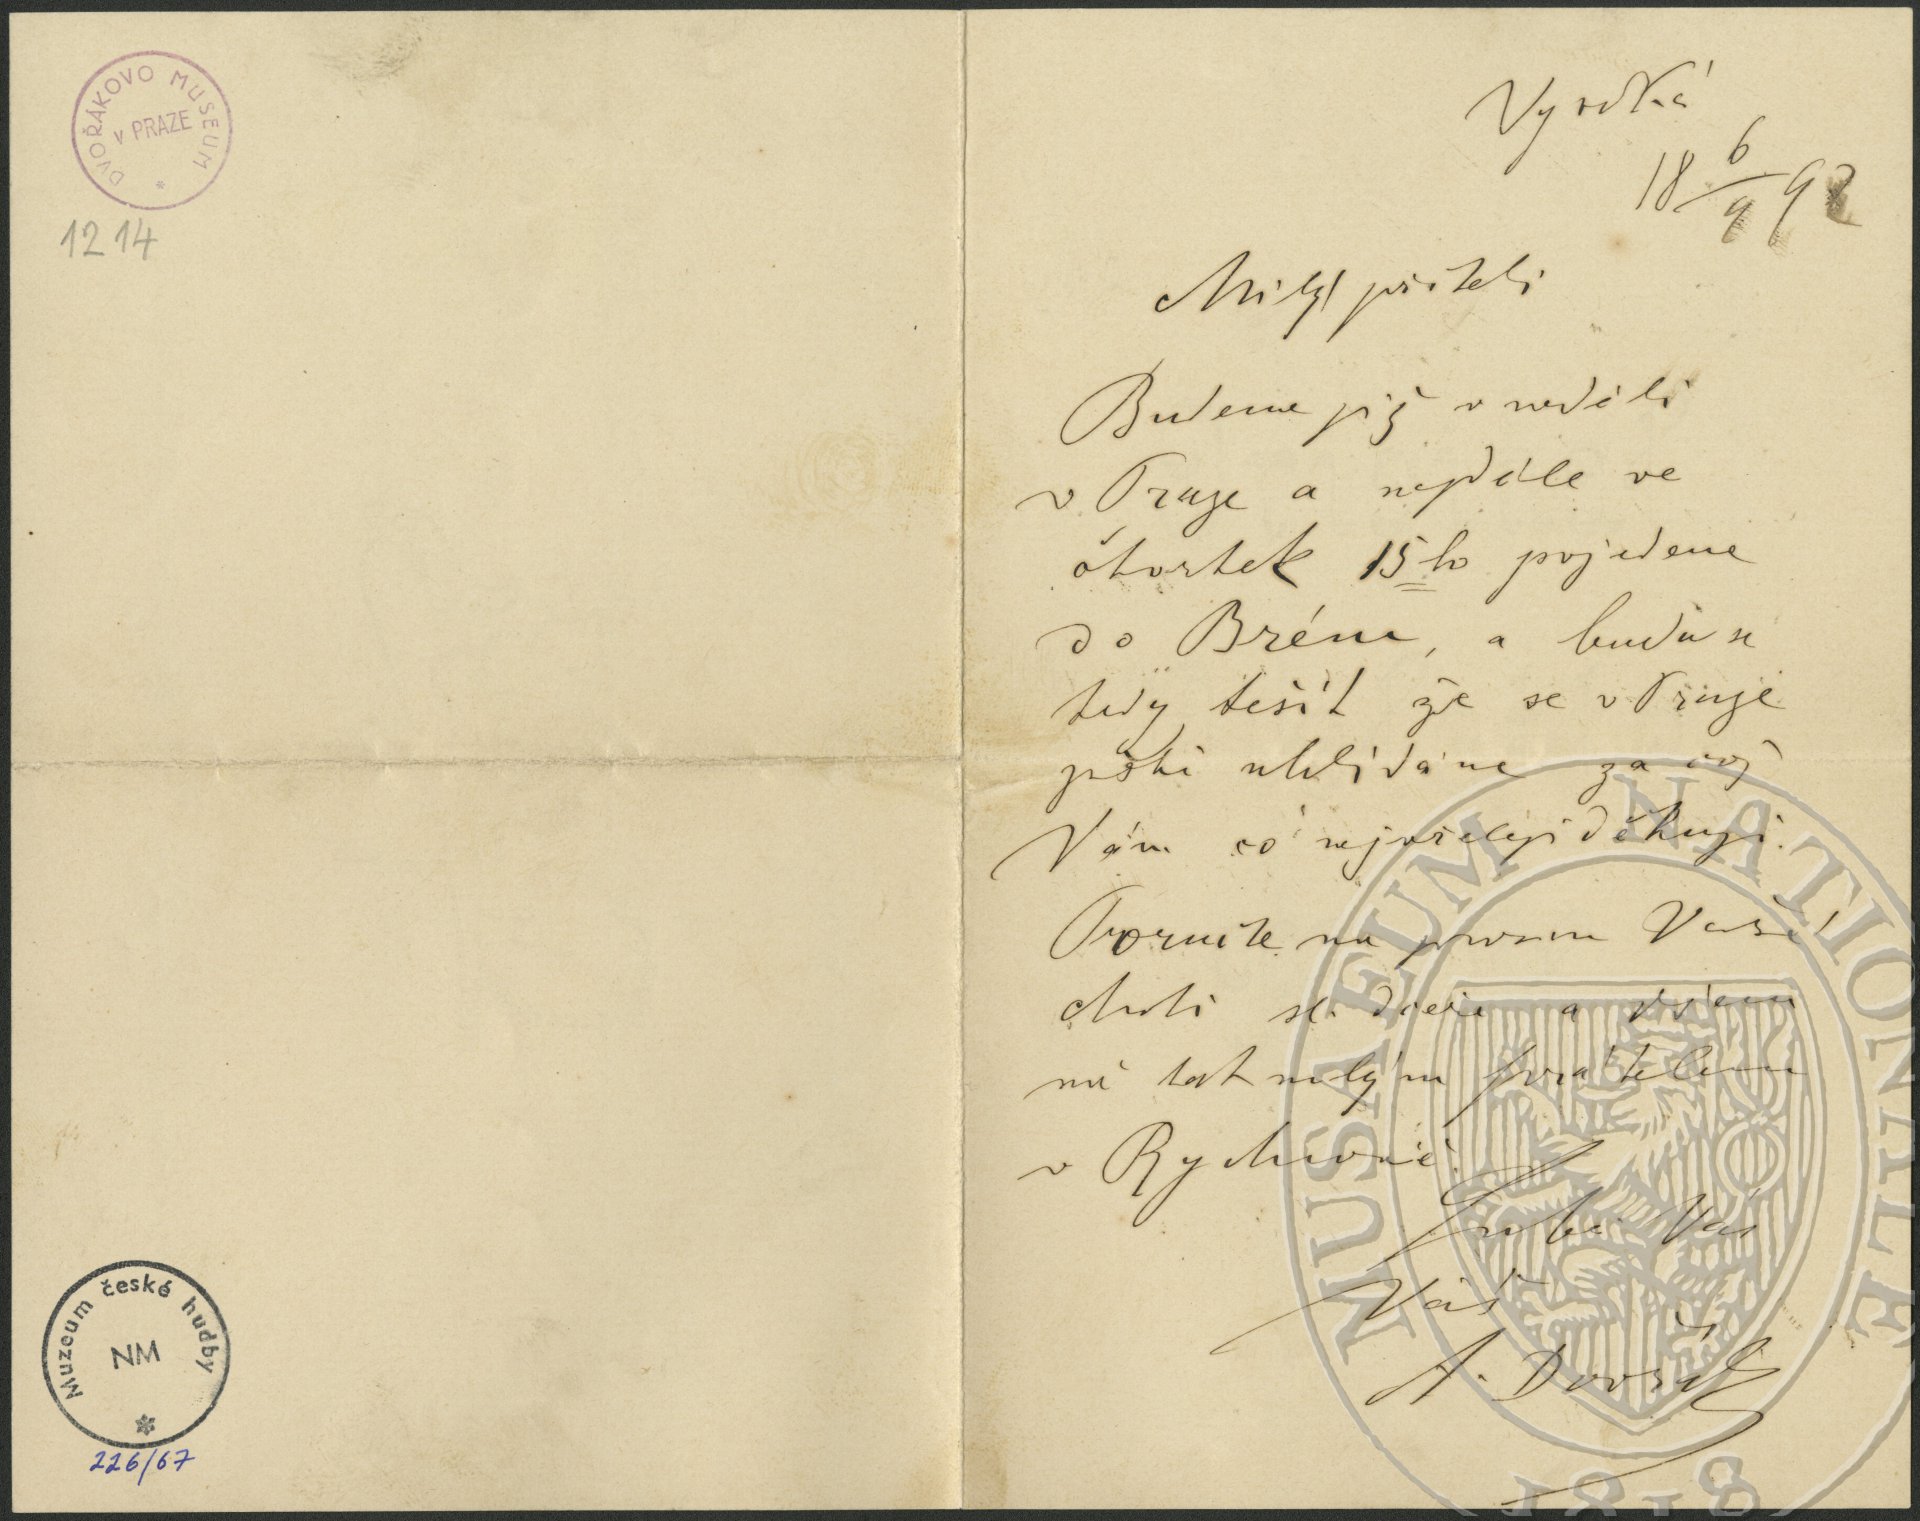 DVOŘÁKOVO MUSEUM
v PRAZE
1214
Vysoká
18 6/9 92
Milý příteli
Budeme již v neděli
v Praze a nejdéle ve
čtvrtek 15ho pojedeme
do Bréme, a budu se
tedy těšit že se v Praze
ještě uhlídáme za což
Vám co nejvřeleji děkuji.
Poručte mne prosím Vaší
choti sl. dceři a všem
mě tak milým přátelům
v Rychnově.
Líbá Vás
Váš
A. Dvořák
Muzeum české hudby
NM
226/67
MUSAEUM NATIONALE
1818